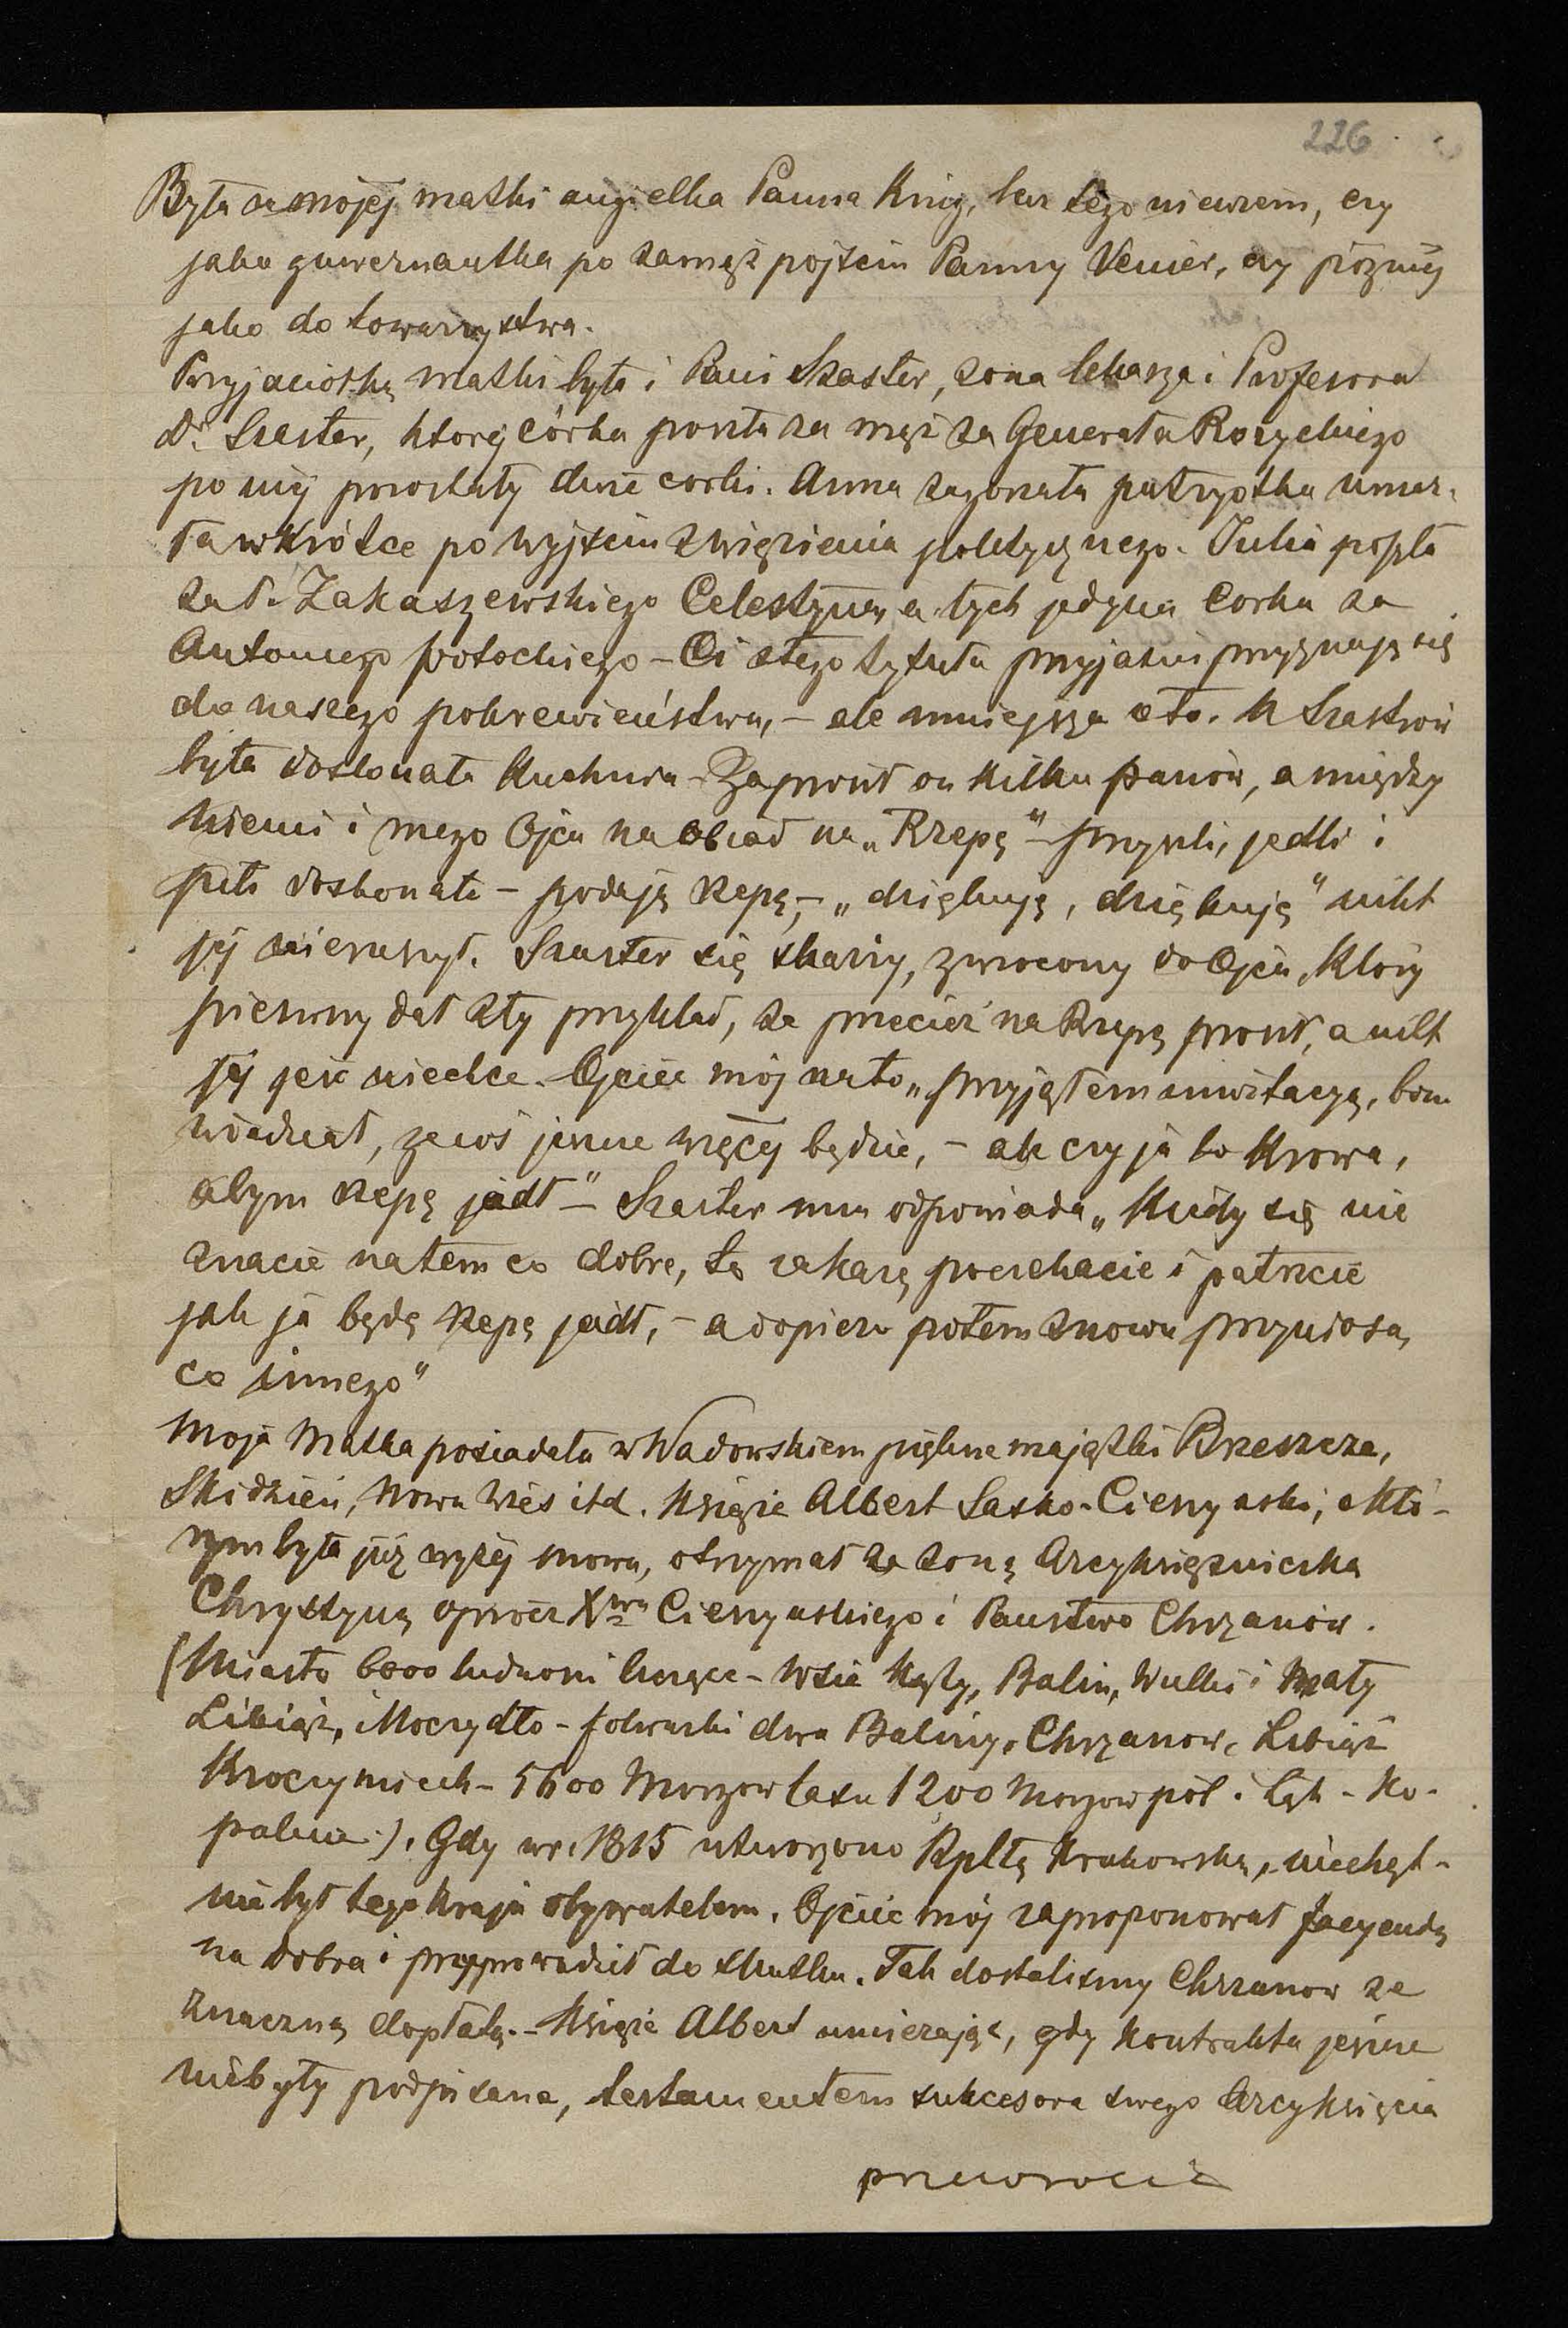 226
Była za mojej matki angielka Panna King, lecz tego niewiem, czy
jako guwernantka po zamęż pojściu Panny Venier, czy poźniej
jako do towarzystwa.
Przyjaciołką matki była i Pani Szaster, zona lekarza i Profesora
Dr Szaster, ktorej córka poszła za męż za Generała Rozyckiego
po niej pozostały dwie corki. Anna zagorzała patryotka umar-
ła wkrótce po wyjściu z więzienia politycznego. Julia poszła
za P. Zakaszewskiego Celestyna, a tych jedyna Corka za
Antoniego Potockiego – Ci z tego tytułu przyjazni przyznają się
do naszego pokrewieństwa, – ale mniejsza o to. U Szastrów
była doskonała Kuchnia – Zaprosił on kilku panów, a między
niemi i mego Ojca na obiad na „Rzepę" – przyszli, jedli i
pili doskonale – podają rzepę, – „dziękuję, dziękuję" nikt
jej nieruszył. Szaster się skarży, zwrocony do Ojca, który
pierwszy dał zły przykład, ze przecież na Rzepę prosił, a nikt
jej jeść niechce. Ojciec mój na to „przyjąłem inwitacyą, bom
wiedział, ze coś jeszcze więcej będzie, – ale czy ja to Krowa,
abym rzepę jadł" – Szaster mu odpowiada „Kiedy się nie
znacie na tem co dobre, to zakarę poczekacie i patrzcie
jak ja będę rzepę jadł, – a dopiero potem znowu przyniosą
co innego"
Moja Matka posiadała w Wadowskiem piękne majątki Brzeszcze,
Skidzień, Nowa Wieś itd. Książe Albert Sasko-Cieszyński, o któ-
rym była już wyżej mowa, otrzymał za zoną Arcyksiężniczką
Chrystyną oprócz Xtwa Cieszyńskiego i Panstwo Chrzanów.
(Miasto 6000 ludnosci liczące – Wsie Kąty, Balin, Wielki i Mały
Libiąż, i Moczydło – folwarki dwa Baliny, Chrzanow, Libiąż
Kroczymiech – 5600 Morgow lasu 1200 Morgow pól i Łąk – Ko-
palnie). Gdy w r. 1815 utworzono Rpltą Krakowską, niechęt-
nie był tego kraju obywatelem. Ojciec mój zaproponował facyendą
na dobra i przyprowadził do skutku. Tak dostalismy Chrzanow za
znaczną dopłatą. – Książe Albert umierając, gdy kontrakta jeszcze
niebyły podpisane, testamentem sukcesora swego Arcyksięcia
przewrocić